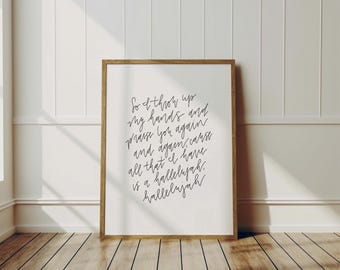 So I throw up
my hands and
praise You again
and again, cause
all that I have
is a hallelujah,
hallelujah